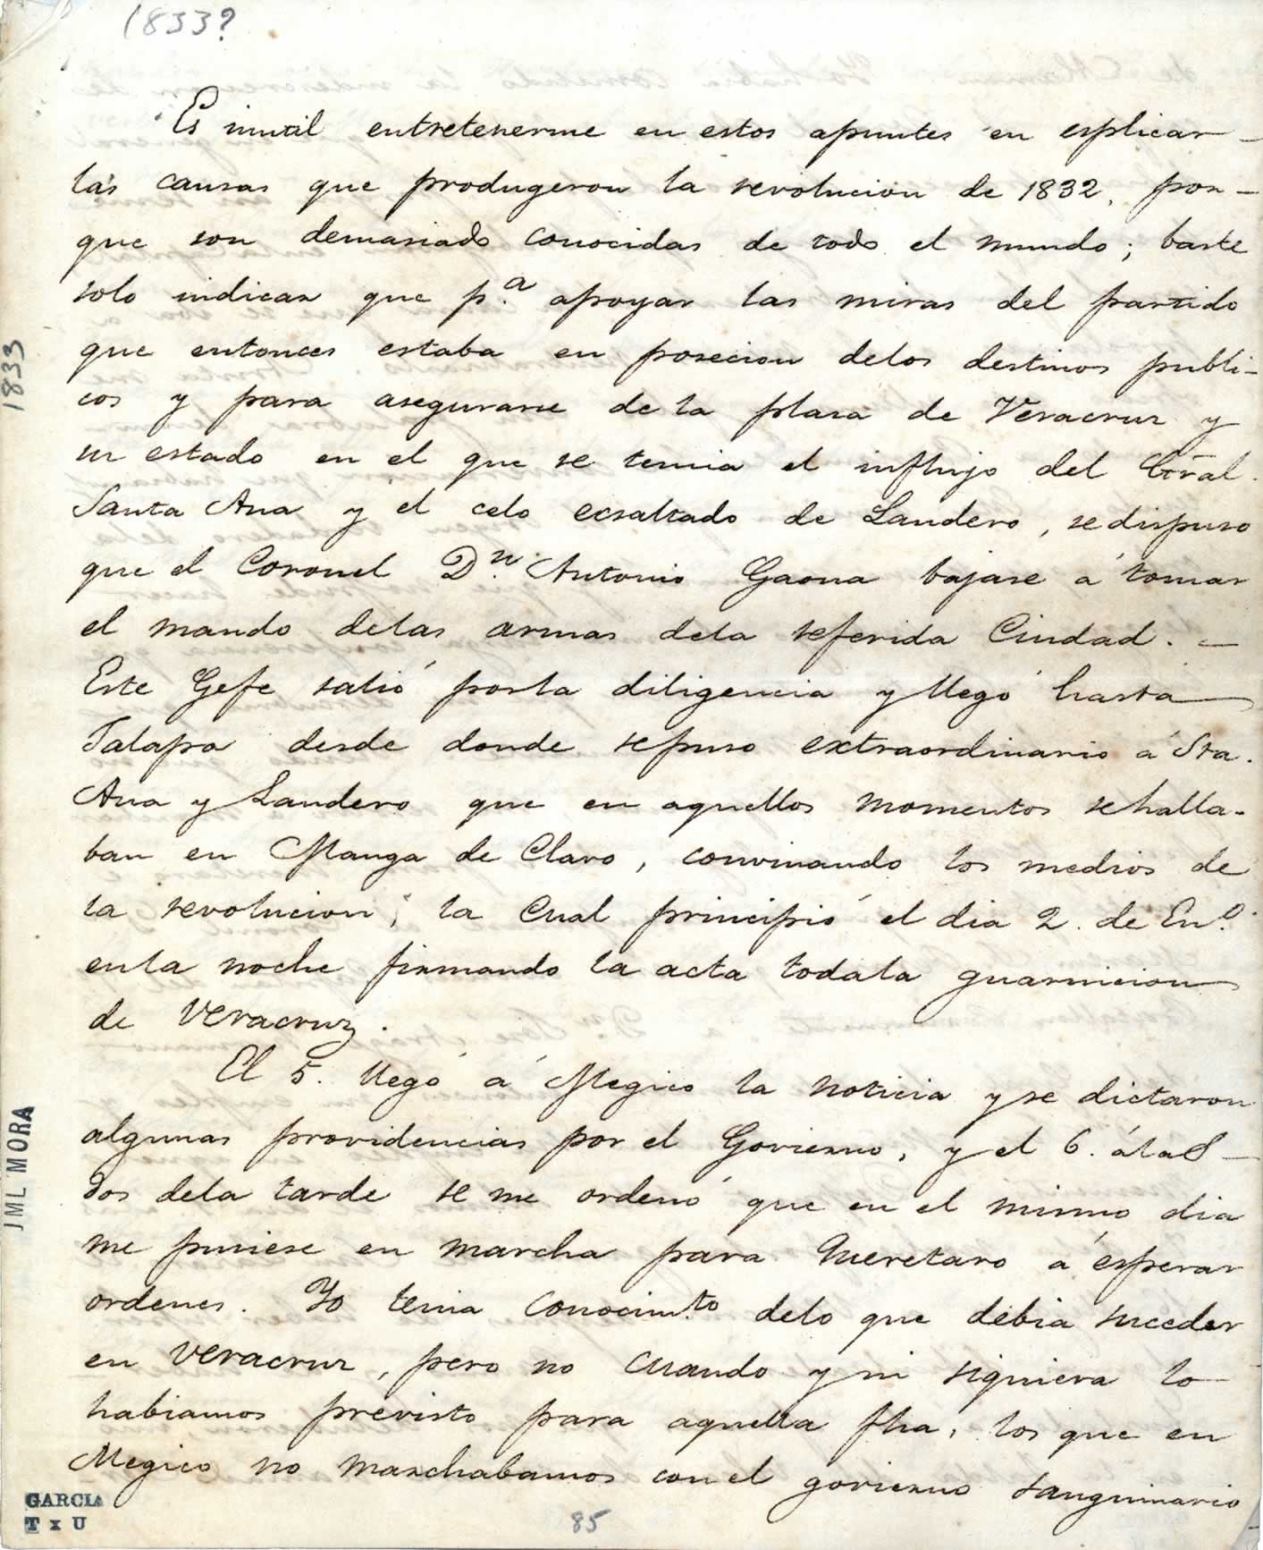 1833?
Es inutil entretenerme en estos apuntes en esplicar
las causas que produgeron la revolucion de 1832, por-
que son demasiado conocidas de todo el mundo; baste
solo indicar que p.ª apoyar las miras del partido
que entonces estaba en posecion delos destinos publi-
cos y para asegurarse de la plasa de Veracruz y
su estado en el que se temia el influjo del Gral.
Santa Ana y el celo ecsaltado de Landero, se dispuso
que el Coronel D.n Antonio Gaona bajase á tomar
el mando delas armas dela referida Ciudad. –
Este Gefe salió porla diligencia y llegó hasta
Jalapa desde donde sepuso extraordinario á Sta.
Ana y Landero que en aquellos momentos sehalla-
ban en Manga de Clavo, convinando los medios de
la revolucion; la Cual principió el dia 2. de En.o
enla noche firmando la acta todala guarnicion
de Veracruz.
El 5. llegó á Megico la noticia y se dictaron
algunas providencias por el Govierno, y el 6. álas
dos dela tarde se me ordenó que en el mismo dia
me pusiese en marcha para Queretaro á esperar
ordenes. Yo tenia conocim.to delo que debia suceder
en Veracruz, pero no cuando y ni siquiera lo
habiamos previsto para aquella fha, los que en
Megico no marchabamos con el govierno sanguinario
1833
JML MORA
GARCIA
T x U
85